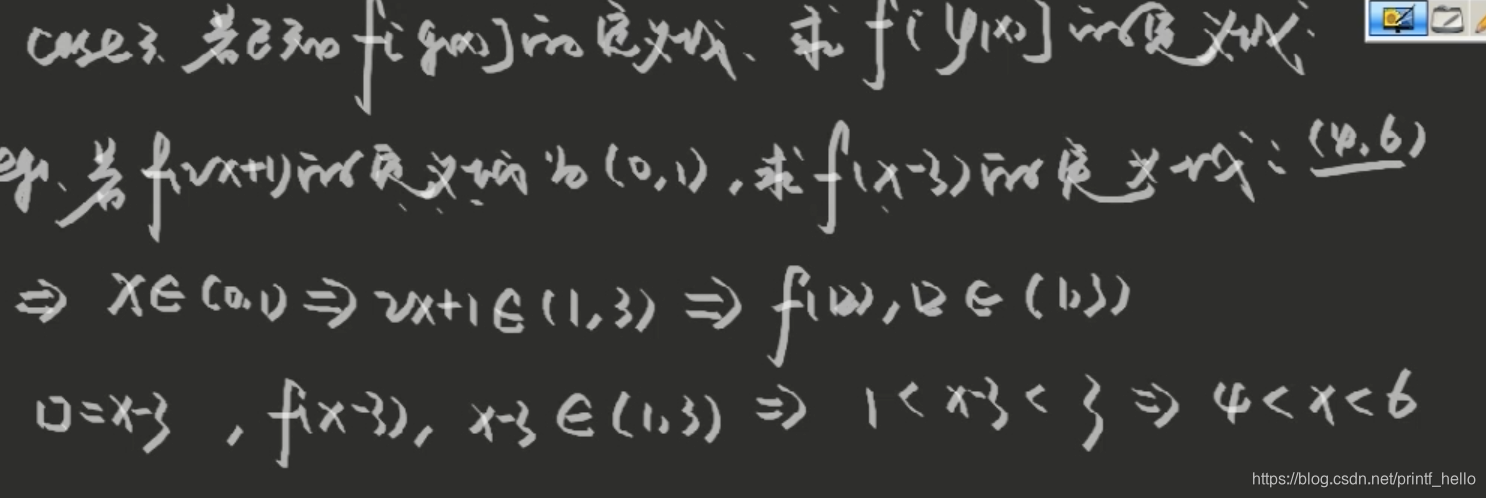 case3. 若已知f[g(x)]的定义域、求f[φ(x)]的定义域:
eg、若f(2x+1)的定义域为(0,1),求f(x-3)的定义域:(4,6)
⇒ x∈(0,1)⇒2x+1∈(1,3)⇒f(□),□∈(1,3)
□=x-3 ,f(x-3),x-3∈(1,3)⇒1<x-3<3⇒4<x<6
https://blog.csdn.net/printf_hello